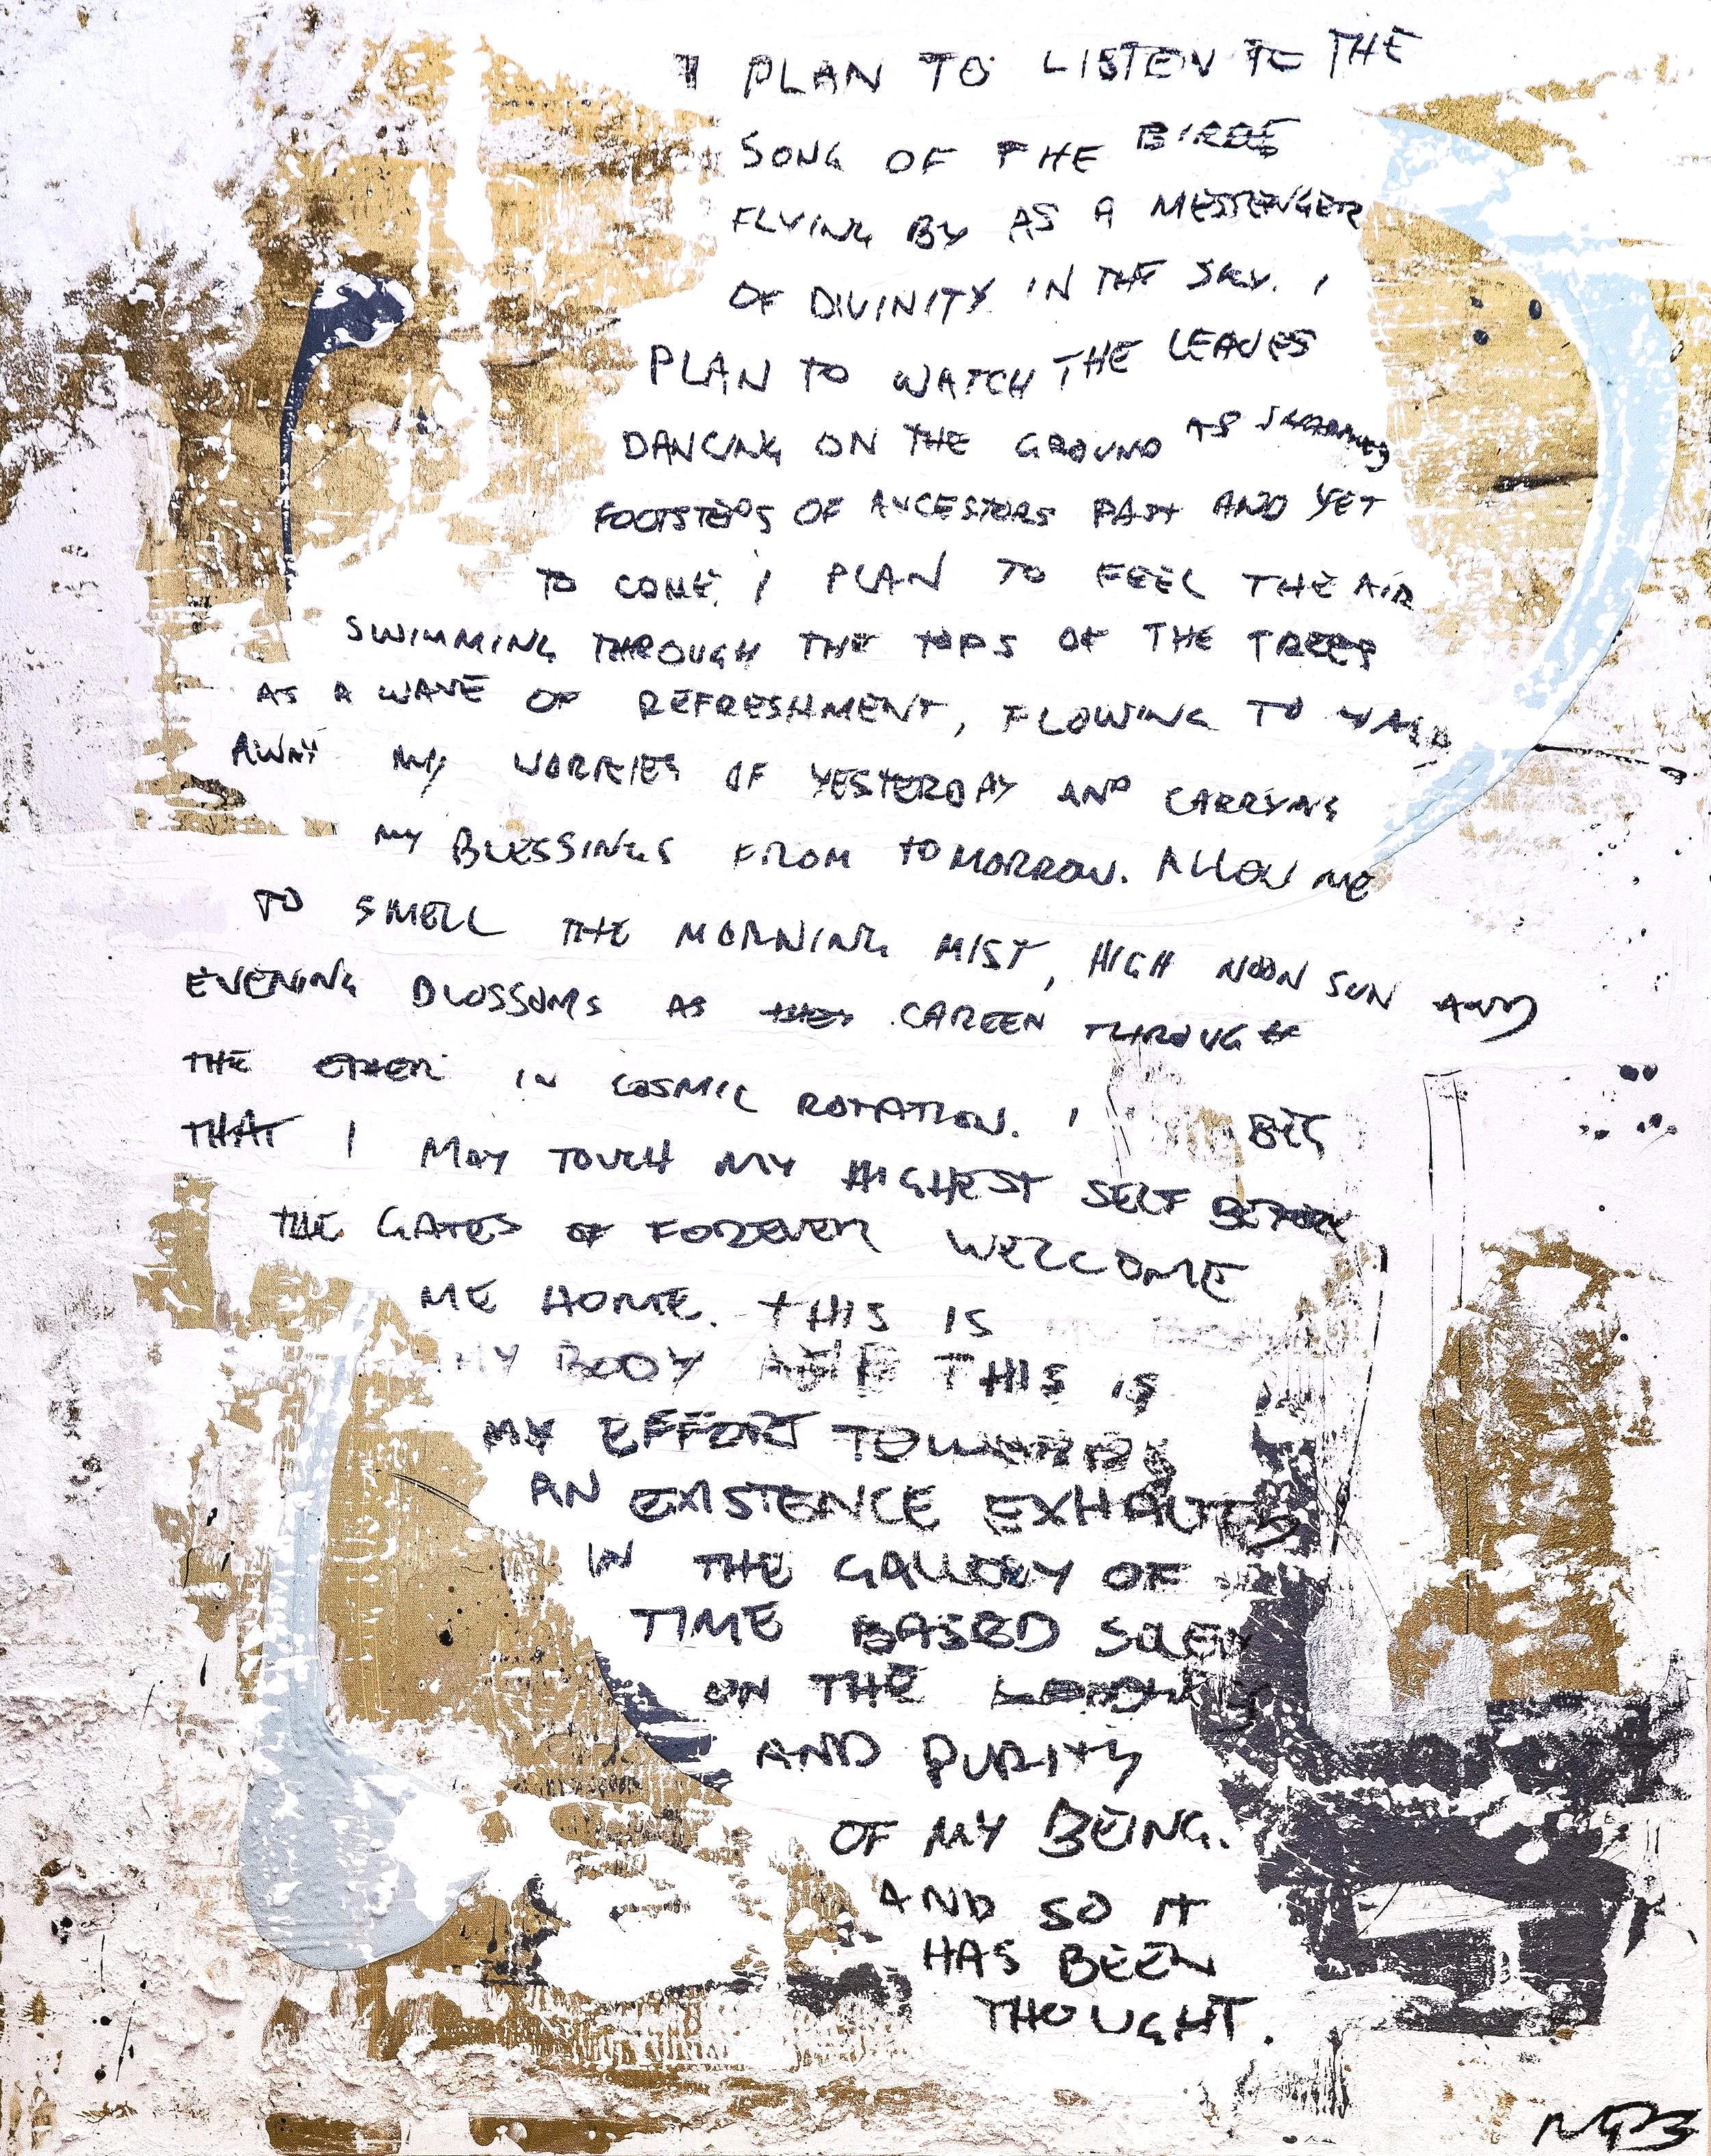 I PLAN TO LISTEN TO THE
SONG OF THE BIRDS
FLYING BY AS A MESSENGER
OF DIVINITY IN THE SKY. I
PLAN TO WATCH THE LEAVES
DANCING ON THE GROUND AS
FOOTSTEPS OF ANCESTORS PAST AND YET
TO COME. I PLAN TO FEEL THE AIR
SWIMMING THROUGH THE TOPS OF THE TREES
AS A WAVE OF REFRESHMENT, FLOWING TO
AWAY MY WORRIES OF YESTERDAY AND CARRYING
MY BLESSINGS FROM TOMORROW. ALLOW ME
TO SMELL THE MORNING MIST, HIGH NOON SUN AND
EVENING BLOSSOMS AS THEY CAREEN THROUGH
THE ETHER IN COSMIC ROTATION. I BEG
THAT I MAY TOUCH MY HIGHEST SELF BEFORE
THE GATES OF FOREVER WELCOME
ME HOME. THIS IS
MY BODY AND THIS IS
MY EFFORT TOWARDS
AN EXISTENCE
IN THE GALLERY OF
TIME BASED SOLELY
ON THE
AND PURITY
OF MY BEING.
AND SO IT
HAS BEEN
THOUGHT.